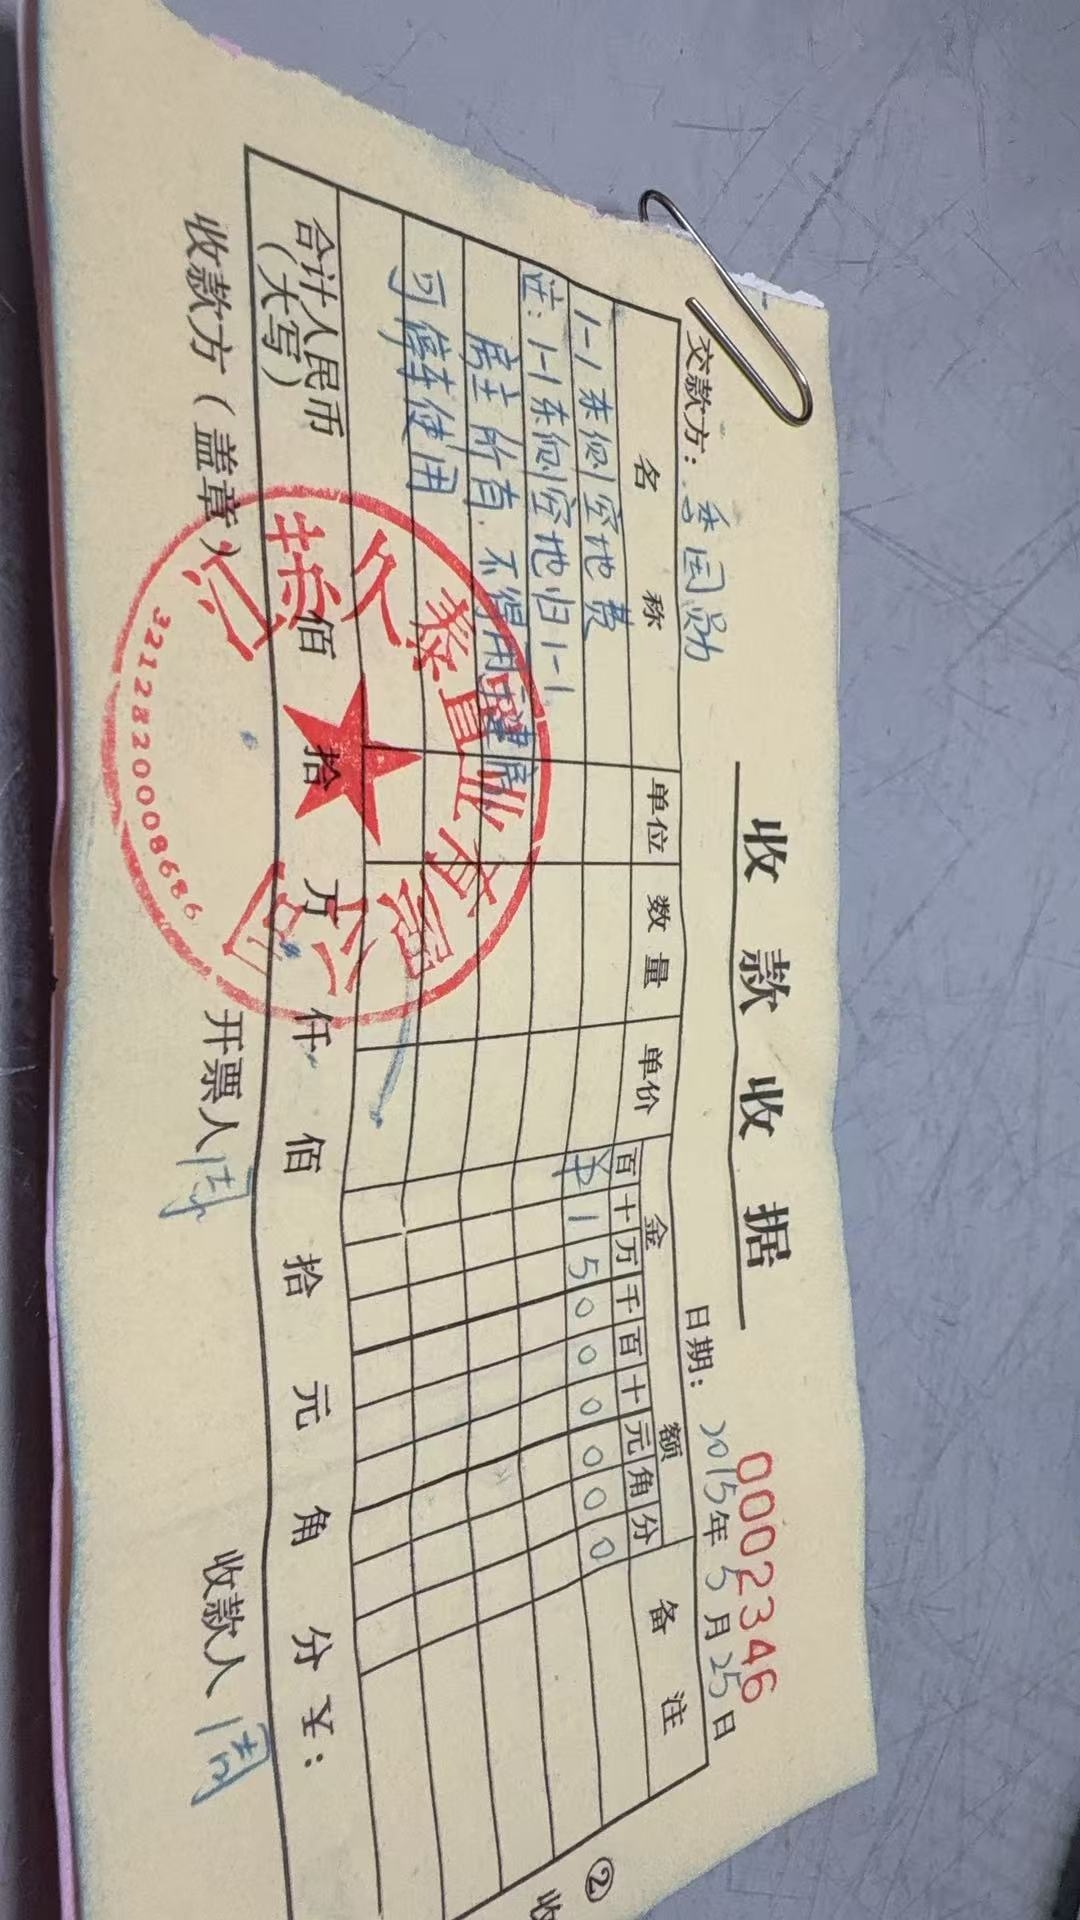 收款收据
00023346
交款方：季国勋
日期：2015年5月25日
名称 单位 数量 单价 金额 备注
百十万千百十元角分
1-1东侧空地费 ¥15000000
注：1-1东侧空地归1-1
居主所有，不得用于建房
可停车使用
合计人民币（大写） 佰 拾 万 仟 佰 拾 元 角 分 ¥：
收款方（盖章） 开票人 周 收款人 周
泰置业有限公司
3212820008686
② 收